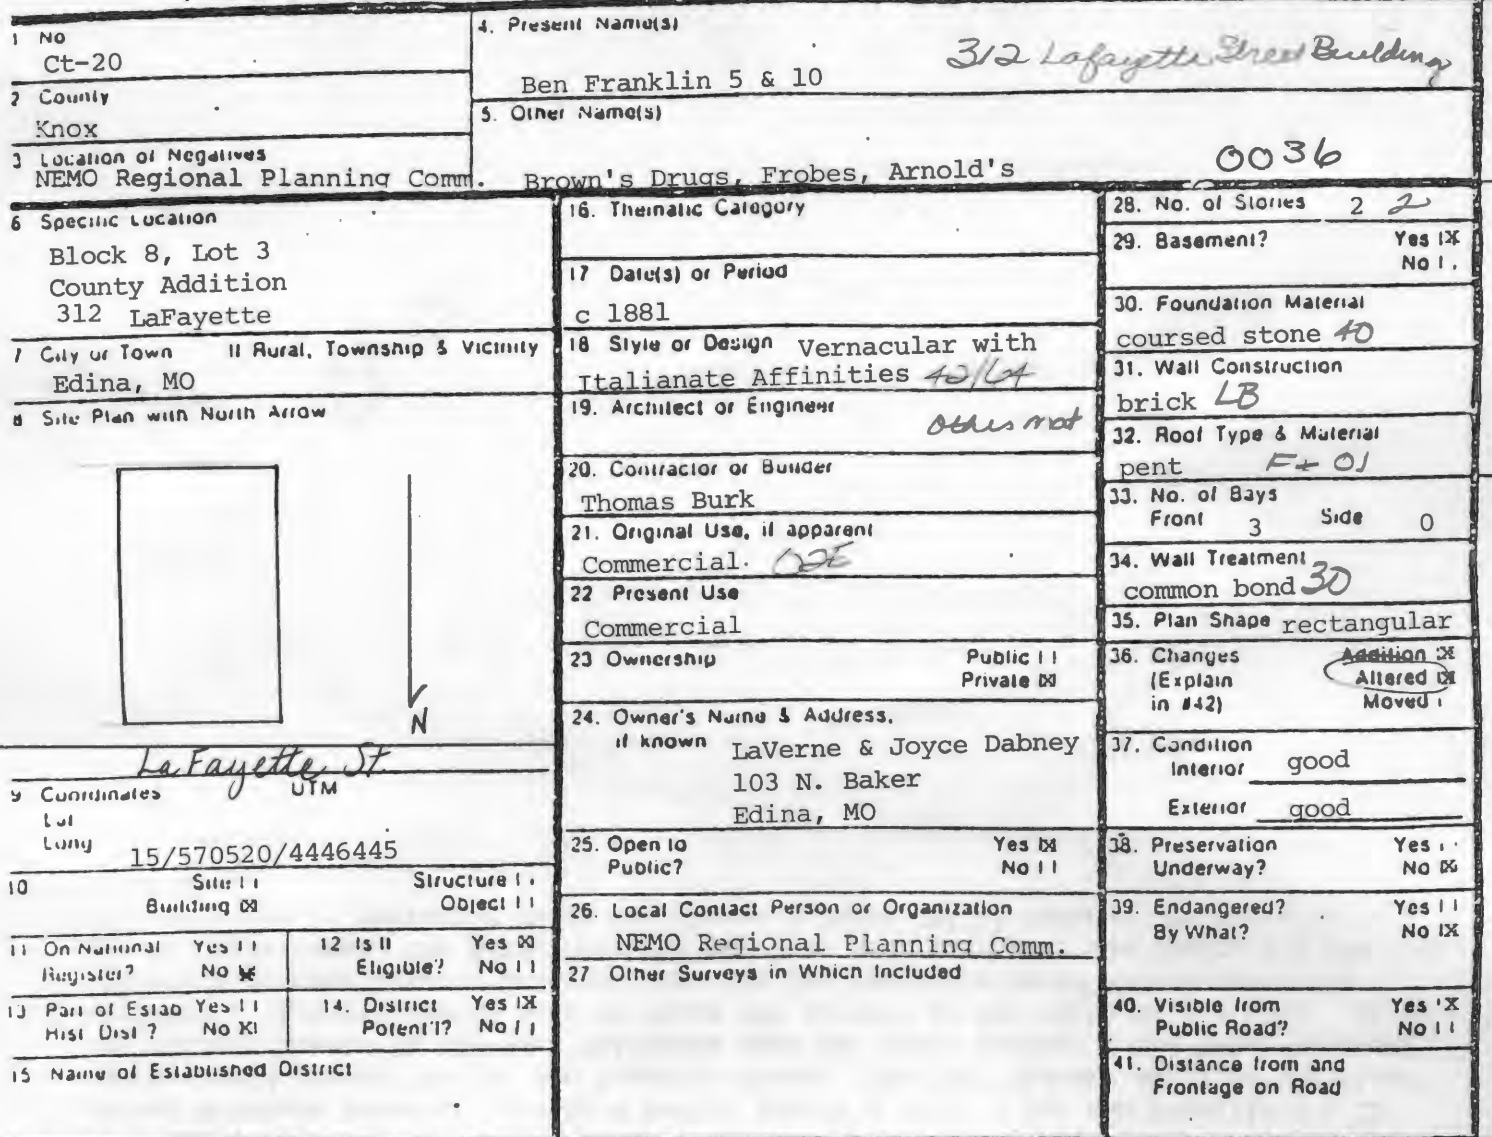 1 No
Ct-20
2 County
Knox
3 Location of Negatives
NEMO Regional Planning Comm.
4. Present Name(s)
312 Lafayette Street Building
Ben Franklin 5 & 10
5. Other Name(s)
0036
Brown's Drugs, Frobes, Arnold's
6 Specific Location
Block 8, Lot 3
County Addition
312 LaFayette
7 City or Town If Rural, Township & Vicinity
Edina, MO
8 Site Plan with North Arrow
N
LaFayette St
9 Coordinates UTM
Lat
Long
15/570520/4446445
10 Site | | Structure | |
Building |X| Object | |
11 On National Register? Yes | | No |X|
12 Is It Eligible? Yes |X| No | |
13 Part of Estab Hist Dist? Yes | | No |X|
14. District Potent'l? Yes |X| No | |
15 Name of Established District
16. Thematic Category
17 Date(s) or Period
c 1881
18 Style or Design Vernacular with
Italianate Affinities
19. Architect or Engineer
20. Contractor or Builder
Thomas Burk
21. Original Use, if apparent
Commercial. 02E
22 Present Use
Commercial
23 Ownership Public | |
Private |X|
24. Owner's Name & Address,
if known LaVerne & Joyce Dabney
103 N. Baker
Edina, MO
25. Open to Yes |X|
Public? No | |
26. Local Contact Person or Organization
NEMO Regional Planning Comm.
27 Other Surveys in Which Included
28. No. of Stories 2 2
29. Basement? Yes |X|
No | |
30. Foundation Material
coursed stone 40
31. Wall Construction
brick LB
32. Roof Type & Material
pent
33. No. of Bays
Front 3 Side 0
34. Wall Treatment
common bond 30
35. Plan Shape rectangular
36. Changes Addition |X|
(Explain Altered |X|
in #42) Moved | |
37. Condition
Interior good
Exterior good
38. Preservation Yes | |
Underway? No |X|
39. Endangered? Yes | |
By What? No |X|
40. Visible from Yes |X|
Public Road? No | |
41. Distance from and
Frontage on Road